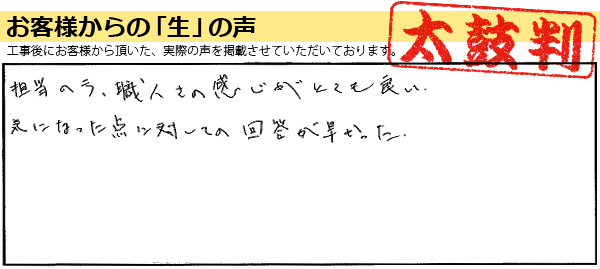 お客様からの「生」の声
太鼓判
工事後にお客様から頂いた、実際の声を掲載させていただいております。
担当の方、職人さの感じがとても良い.
気になった点に対しての回答が早かった.